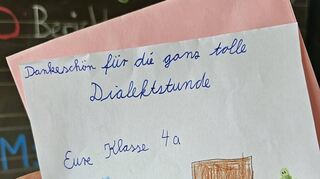 Dankeschön für die ganz tolle
Dialektstunde
Eure Klasse 4a